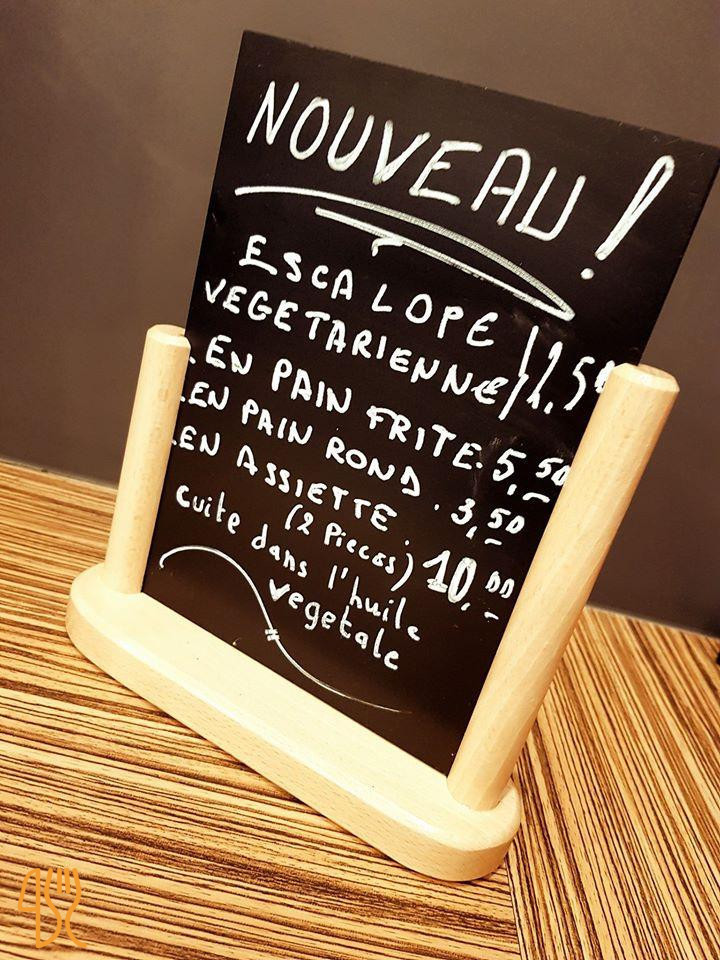 NOUVEAU !
ESCALOPE
VEGETARIENNE } 2,50
.EN PAIN FRITE. 5,50
.EN PAIN ROND . 3,50
.EN ASSIETTE .
(2 Pieces) 10,00
cuite dans l'huile
vegetale